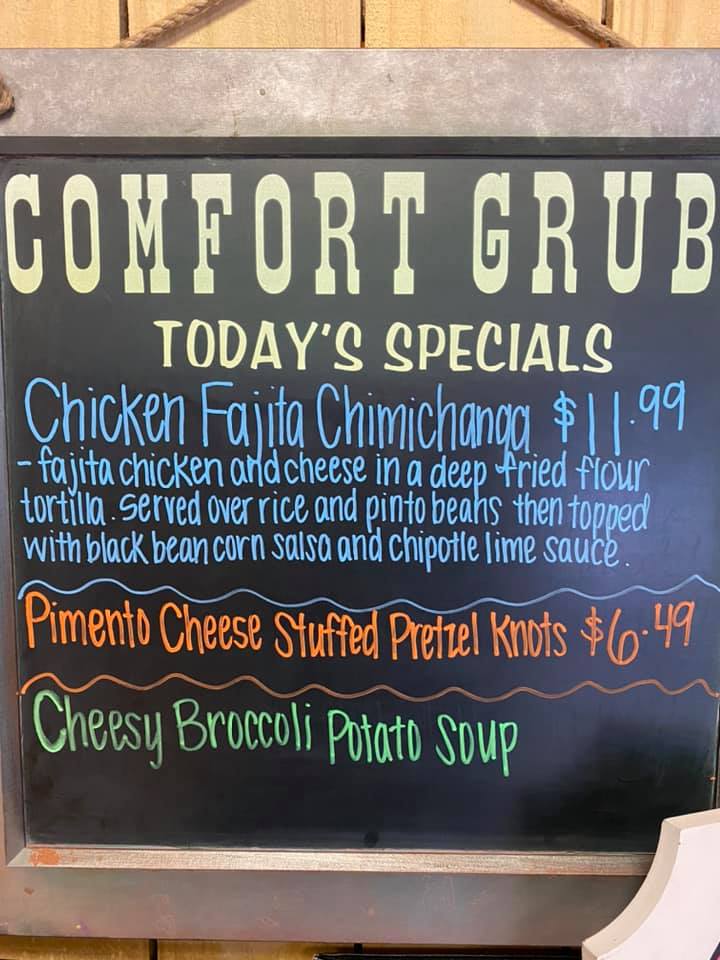 COMFORT GRUB
TODAY'S SPECIALS
Chicken Fajita Chimichanga $11.99
- fajita chicken and cheese in a deep fried flour
tortilla. Served over rice and pinto beans then topped
with black bean corn salsa and chipotle lime sauce.
Pimento Cheese Stuffed Pretzel Knots $6.49
Cheesy Broccoli Potato Soup